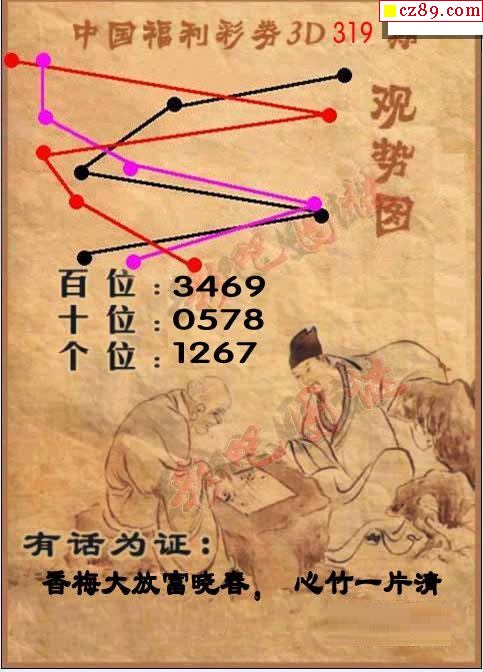 cz89.com
中国福利彩券3D 319 期
观势图
百位:3469
十位:0578
个位:1267
彩吧图社
彩吧图社
有话为证:
香梅大放富晓春, 心竹一片清